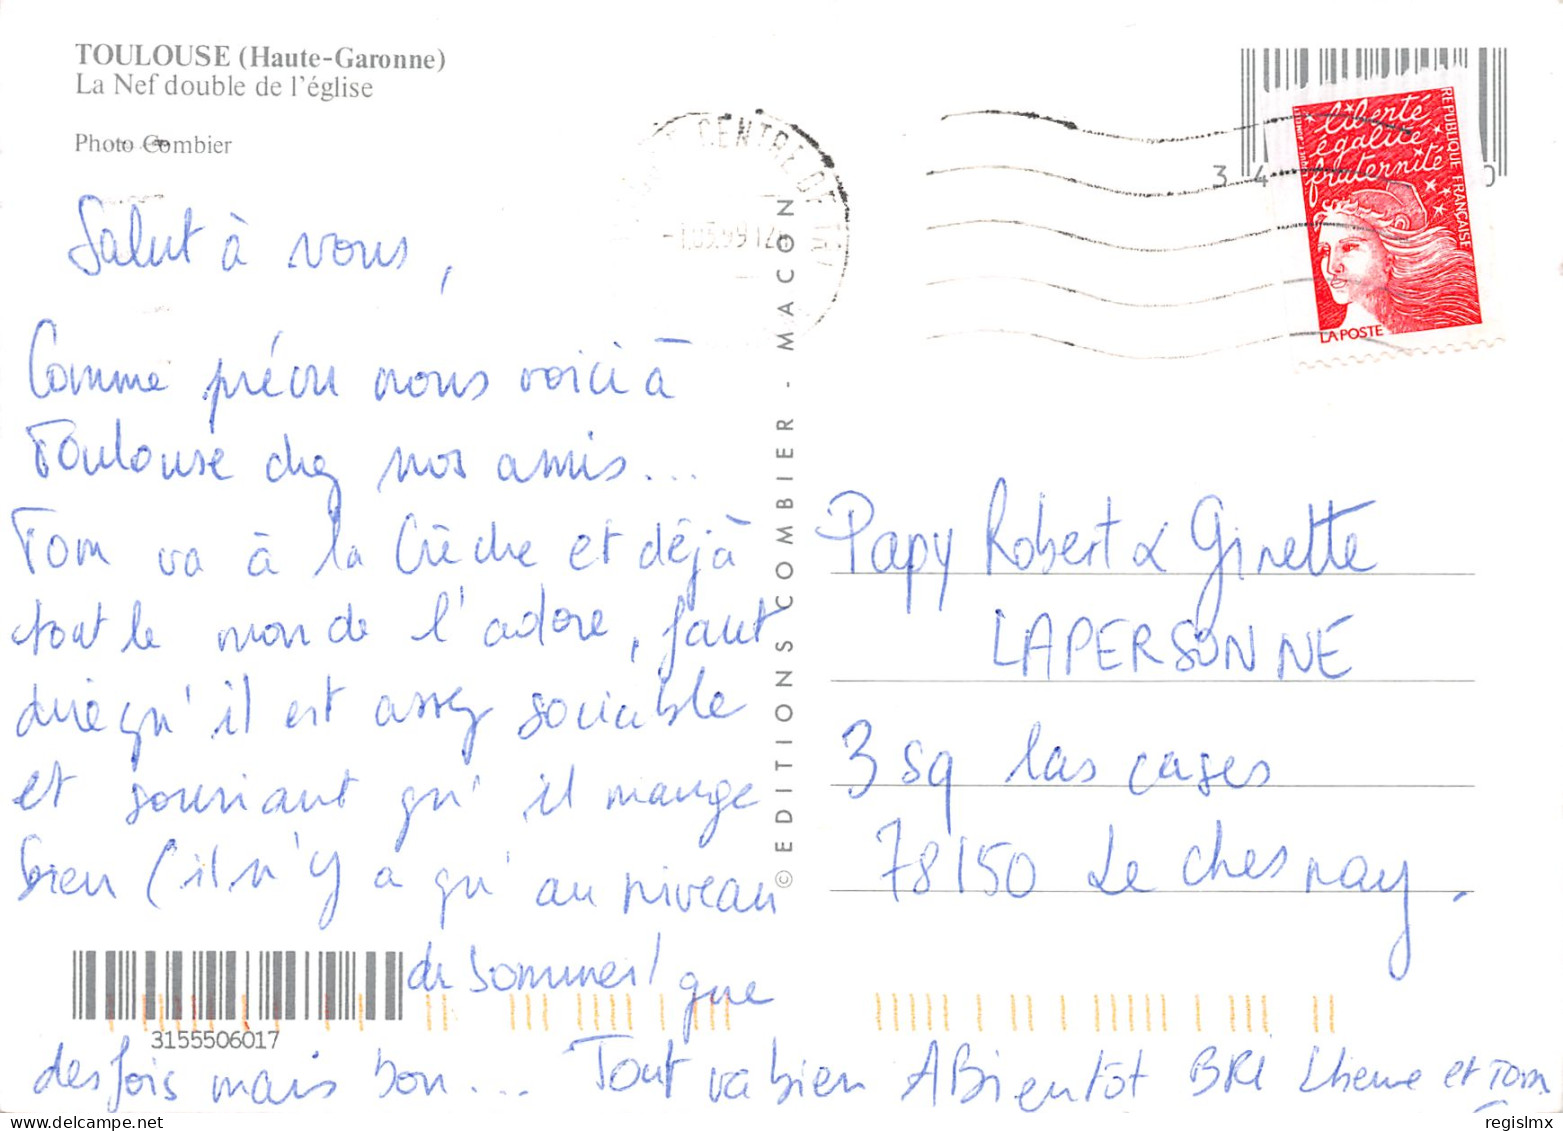 TOULOUSE (Haute-Garonne)
La Nef double de l'église
Photo Combier
Salut à vous,
Comme prévu nous voici à
Toulouse chez nos amis...
Tom va à la Crèche et déjà
tout le monde l'adore, faut
dire qu'il est assez sociable
et souriant qu'il mange
bien (il n'y a qu'au niveau
du sommeil que
des fois mais bon... Tout va bien A Bientôt BRI et Tom
3155506017
© EDITIONS COMBIER - MACON
CENTRE DE TRI
liberté
égalité
fraternité
REPUBLIQUE FRANÇAISE
LA POSTE
Papy Robert & Ginette
LAPERSONNE
3 sq las cases
78150 Le chesnay.
regislmx